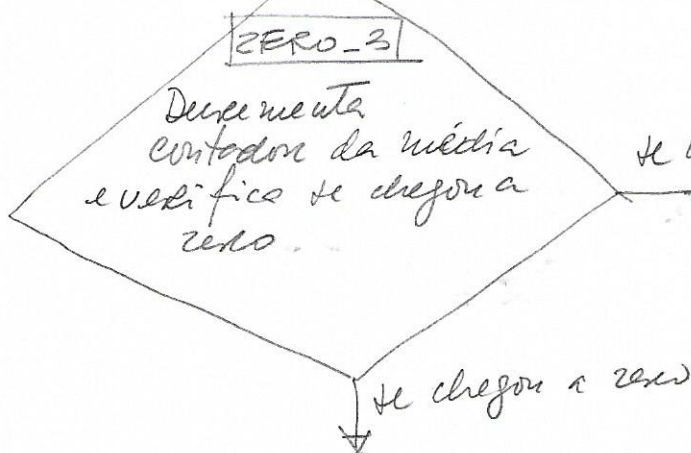 ZERO_3
Decrementa
contador da média
e verifica se chegou a
zero.
se
se chegou a zero